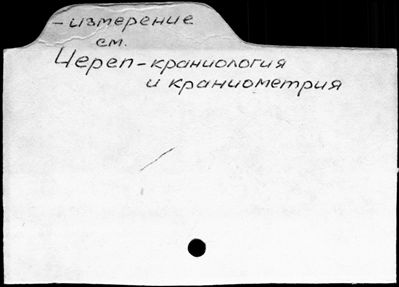 -измерение
см.
Череп-краниология
и краниометрия